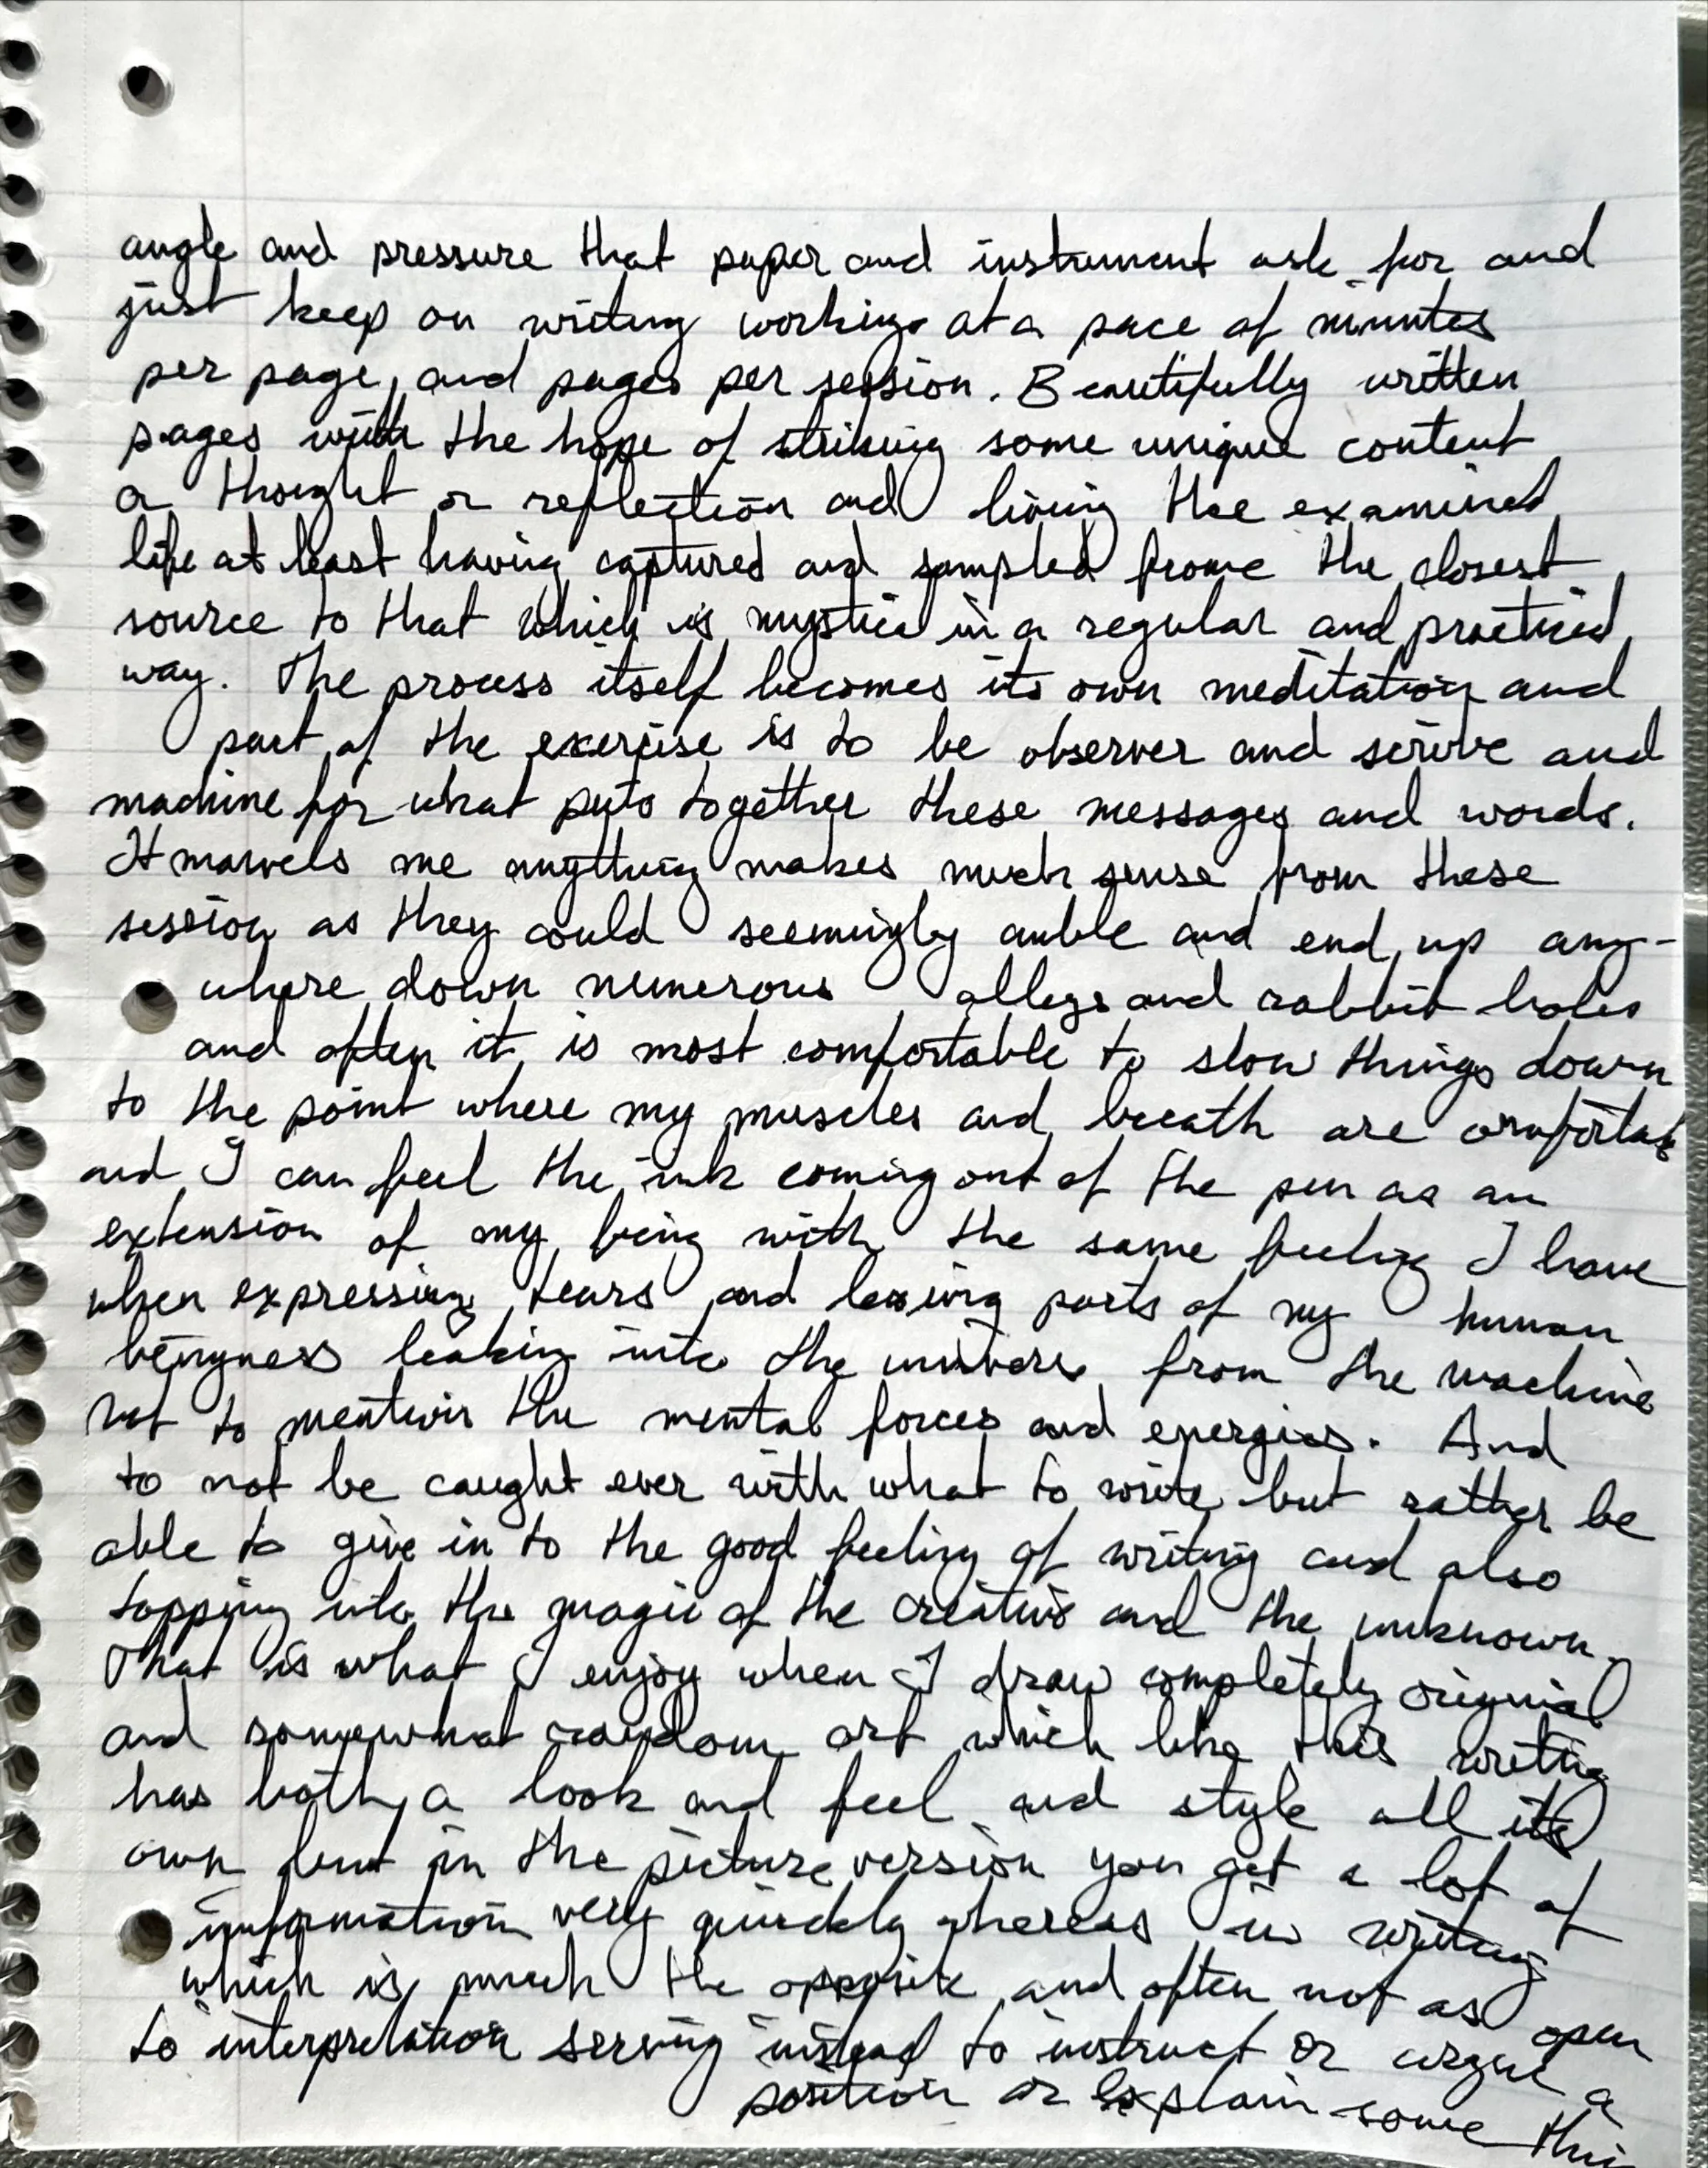 angle and pressure that paper and instrument ask for and
just keep on writing working at a pace of minutes
per page, and pages per session. Beautifully written
pages with the hope of striking some unique content
a thought or reflection and living the examined
life at least having captured and sampled from the closest
source to that which is mystical in a regular and practiced
way. The process itself becomes its own meditation and
part of the exercise is to be observer and scribe and
machine for what puts together these messages and words.
It marvels me anything makes much sense from these
session as they could seemingly amble and end up any-
where down numerous alleys and rabbit holes
and often it is most comfortable to slow things down
to the point where my muscles and breath are comfortab
and I can feel the ink coming out of the pen as an
extension of my being with the same feeling I have
when expressing tears and leaving parts of my human
beingness leaking into the universe from the machine
not to mention the mental forces and energies. And
to not be caught ever with what to write but rather be
able to give in to the good feeling of writing and also
tapping into the magic of the creative and the unknown.
That is what I enjoy when I draw completely original
and somewhat random art which like this writing
has both a look and feel and style all its
own but in the picture version you get a lot of
information very quickly whereas in writing
which is much the opposite and often not as open
to interpretation serving instead to instruct or argue a
position or explain some thin